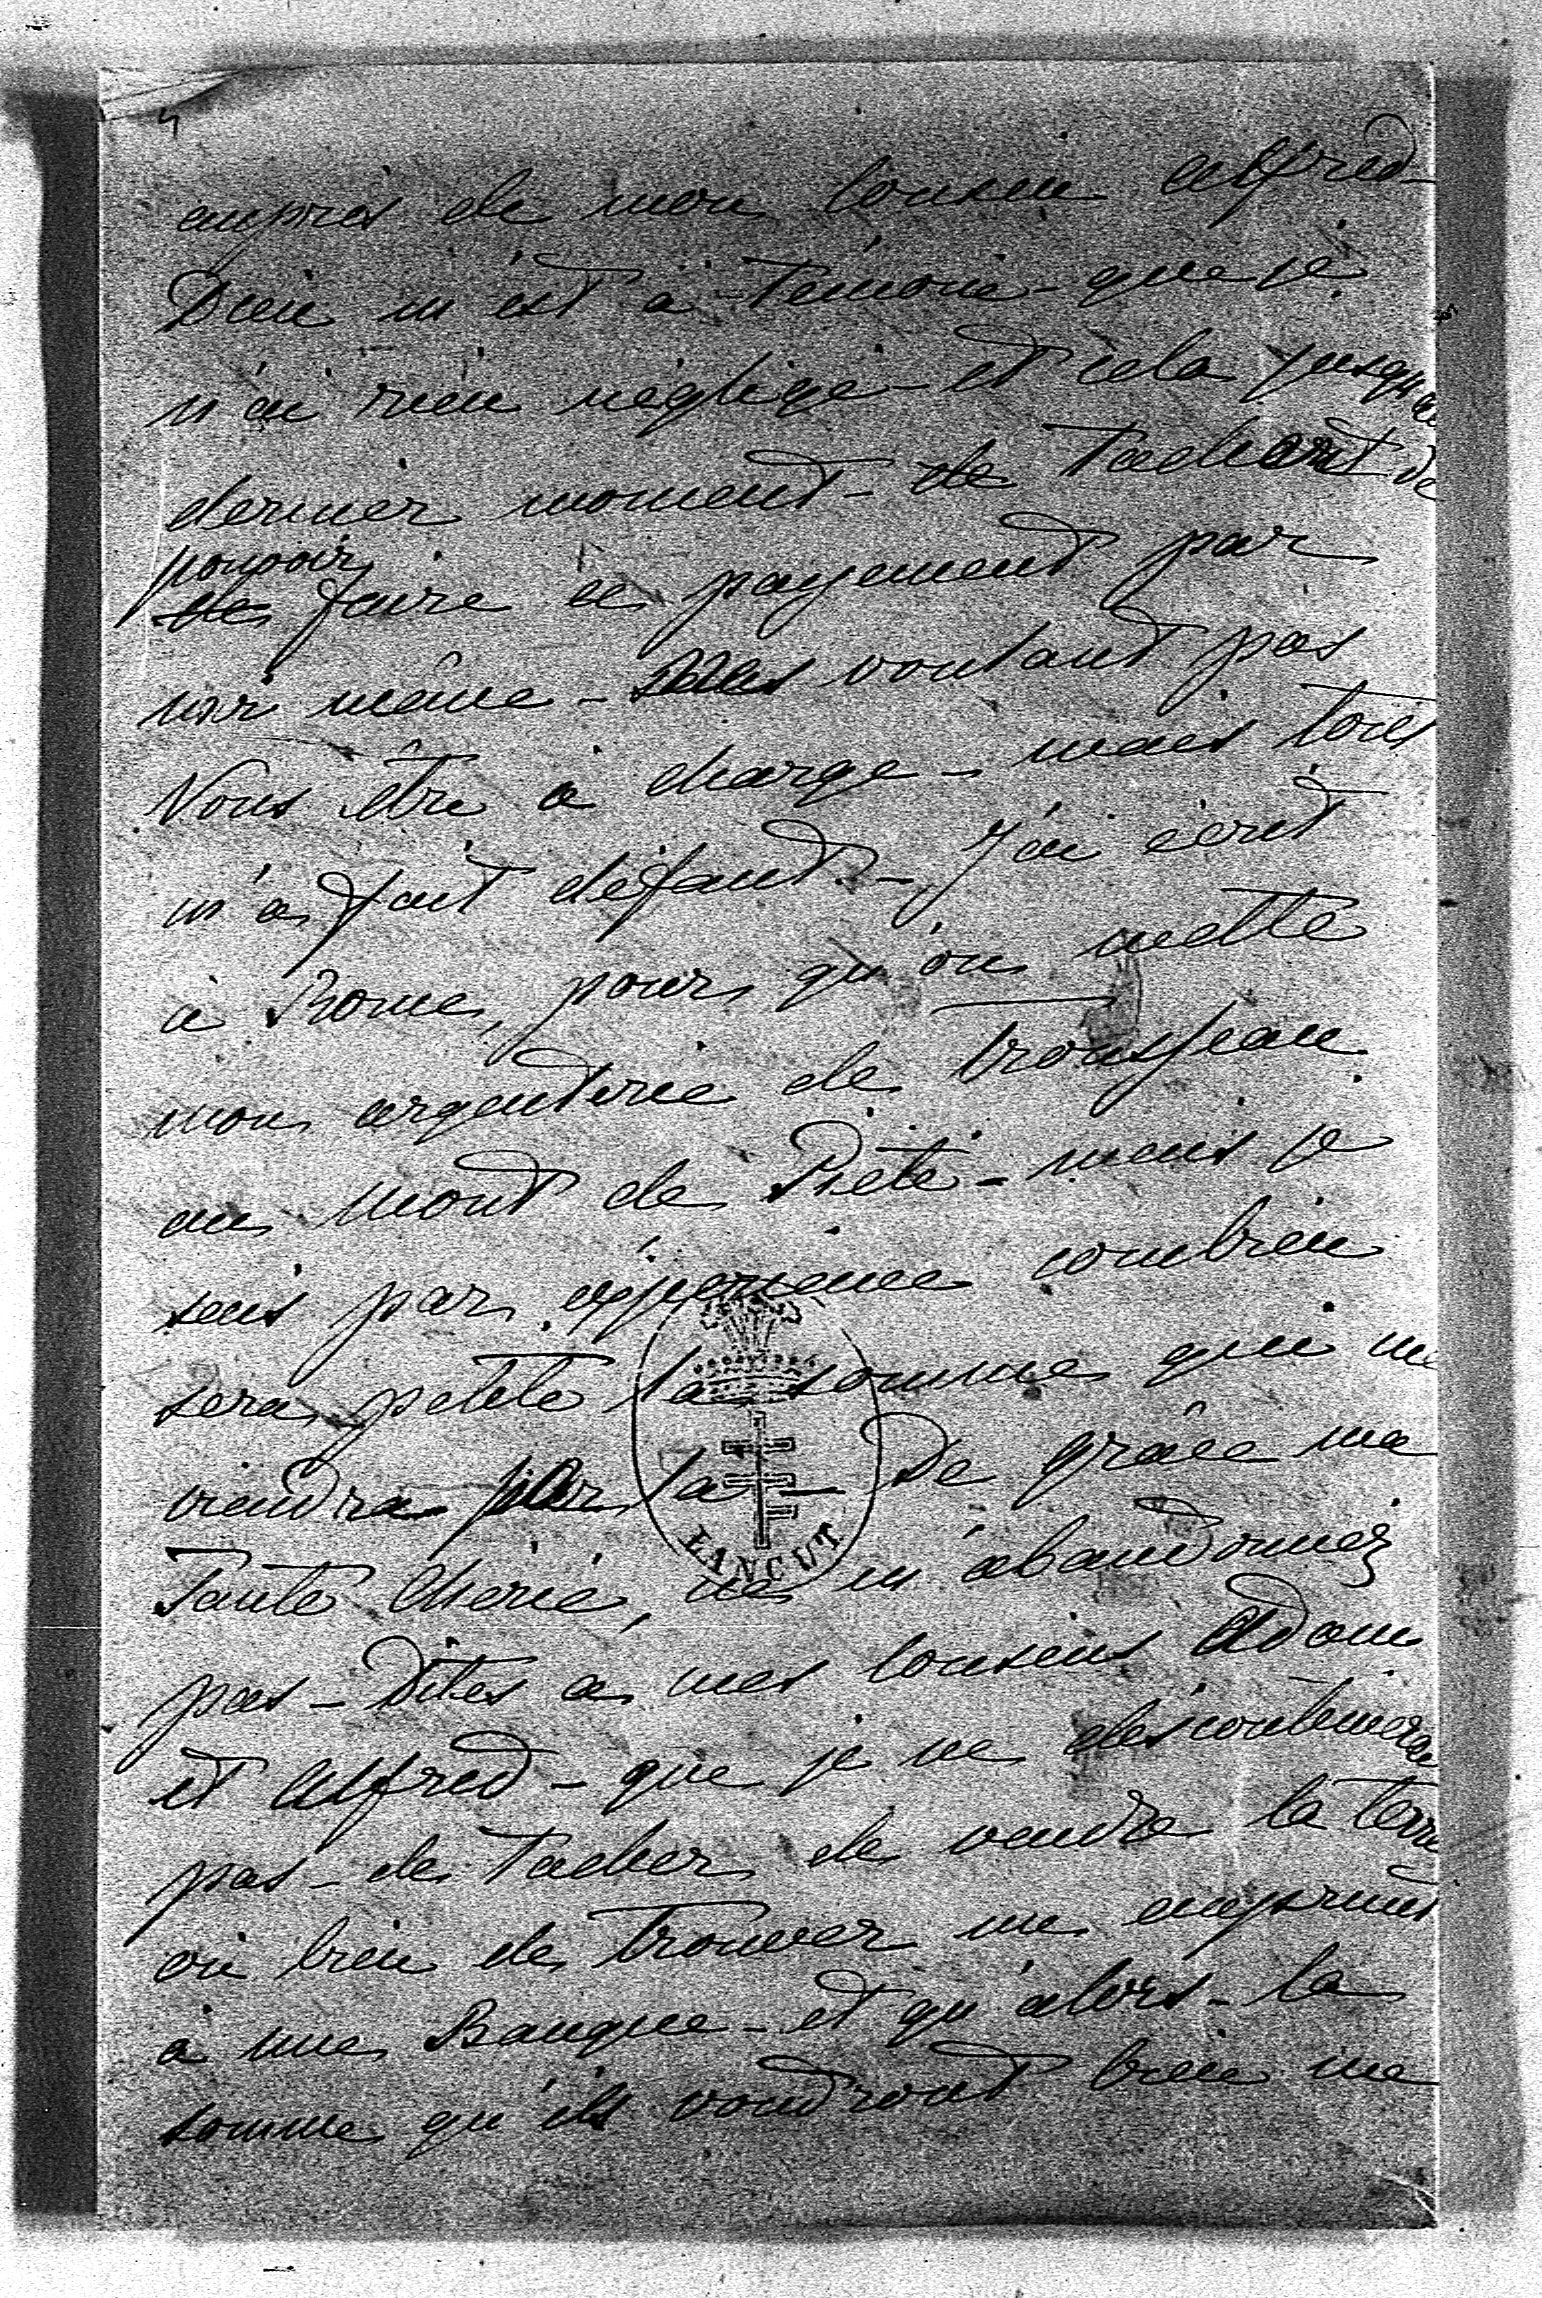 auprès de mon cousin Alfred
Dieu m'est à témoin - que je
n'ai rien négligé - et cela jusqu'au
dernier moment - de tachant de
pouvoir
faire ce payement par
moi même - voulant pas
Vous être à charge - mais tout
m'a fait défaut - J'ai écrit
à Rome, pour qu'on mette
mon argenterie de trousseau
au Mont de Piété - mais je
sais par expérience combien
sera petite la somme qui me
viendra par là - De grâce ma
Tante Chérie, ne m'abandonnez
pas - Dites à mes cousins Adam
et Alfred - que je ne discontinuerai
pas - de tacher de vendre la terre
ou bien de trouver un emprunt
à une Banque - et qu'alors - la
somme qu'ils voudront bien me
LANCUT